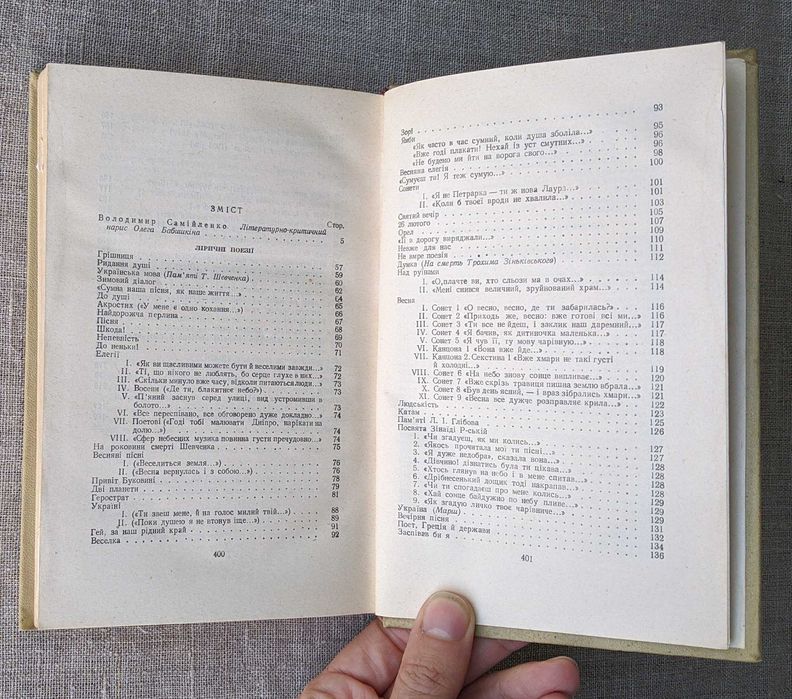 ЗМІСТ
Стор.
Володимир Самійленко. Літературно-критичний
нарис Олега Бабишкіна . . . 5
ЛІРИЧНІ ПОЕЗІЇ
Грішниця . . . 57
Ридання душі . . . 59
Українська мова (Пам'яті Т. Шевченка) . . . 59
Зимовий діалог . . . 60
«Сумна наша пісня, як наше життя...» . . . 62
До душі . . . 64
Акростих («У мене є одно кохання...») . . . 65
Найдорожча перлина . . . 66
Пісня . . . 67
Шкода! . . . 68
Непевність . . . 69
До неньки! . . . 70
Елегії . . . 71
I. «Як ви щасливими можете бути й веселими завжди...» . . . 72
II. «Ті, що нікого не люблять, бо серце глухе в них...» . . . 72
III. «Скільки минуло вже часу, відколи питаються люди...» . . . 73
IV. Восени («Де ти, блакитнеє небо?») . . . 73
V. «П'яний заснув серед улиці, вид устромивши в
болото...» . . . 73
VI. «Все переспівано, все обговорено дуже докладно...» . . . 74
VII. Поетові («Годі тобі малювати Дніпро, нарікати на
долю...») . . . 74
VIII. «Сфер небесних музика повинна густи пречудовно...» . . . 74
На роковини смерті Шевченка . . . 75
Весняні пісні
I. («Веселиться земля...») . . . 76
II. («Весна вернулась і з собою...») . . . 76
Привіт Буковині . . . 78
Дві планети . . . 79
Герострат . . . 81
Україні
I. («Ти звеш мене, й на голос милий твій...») . . . 88
II. («Поки душею я не втонув іще...») . . . 89
Гей, за наш рідний край . . . 91
Веселка . . . 92
400
Зорі . . . 93
Ямби
«Як часто в час сумний, коли душа зболіла...» . . . 95
«Вже годі плакати! Нехай із уст смутних...» . . . 96
«Не будено ми йти на ворога свого...» . . . 96
Весняна елегія . . . 98
«Сумуєш ти! Я теж сумую...» . . . 100
Сонети
I. «Я не Петрарка — ти ж нова Лаура...» . . . 101
II. «Коли б твоєї вроди не хвалила...» . . . 101
Святий вечір . . . 103
26 лютого . . . 105
Орел . . . 107
«Її в дорогу виряджали...» . . . 109
Невже для нас . . . 110
Не вмре поезія . . . 111
Думка (На смерть Трохима Зіньківського) . . . 112
Над руїнами
I. «О, плачте ви, хто сльози ма в очах...» . . . 114
II. «Мені снився величний, зруйнований храм...» . . . 114
Весна
I. Сонет 1 «О весно, весно, де ти забарилась?» . . . 116
II. Сонет 2 «Приходь же, весно: вже готові всі ми...» . . . 116
III. Сонет 3 «Ти все не йдеш, і заклик наш даремний...» . . . 117
IV. Сонет 4 «Я бачив, як дитиночка маленька...» . . . 117
V. Сонет 5 «Я чув її, ту мову чарівную...» . . . 118
VI. Канцона 1 «Вона вже йде...» . . . 118
VII. Канцона 2. Секстина 1 «Вже хмари не такі густі
й холодні...» . . . 119
VIII. Сонет 6 «На небо знову сонце випливає...» . . . 120
IX. Сонет 7 «Вже скрізь травиця пишна землю вбрала...» . . . 121
X. Сонет 8 «Був день ясний, — і враз зібрались хмари...» . . . 121
XI. Сонет 9 «Весна все дужче розправляє крила...» . . . 122
Людськість . . . 123
Катам . . . 125
Пам'яті Л. І. Глібова . . . 126
Посвята Зінаїді Р-ській
1. «Чи згадуєш, як ми колись...» . . . 127
2. «Якось прочитала мої ти пісні...» . . . 127
3. «Я дуже недобра», сказала вона...» . . . 128
4. «Дівчино! дізнатись була ти цікава...» . . . 128
5. «Хтось глянув на небо і в мене спитав...» . . . 128
6. «Дрібнесенький дощик тоді накрапав...» . . . 128
7. «Чи ти спогадаєш про мене колись...» . . . 128
8. «Хай сонце байдужно по небу пливе...» . . . 129
9. «Як згадую личко твоє чарівниче...» . . . 129
Україна (Марш) . . . 129
Вечірня пісня . . . 131
Пост, Греція й держави . . . 132
Заспівав би я . . . 134
136
401